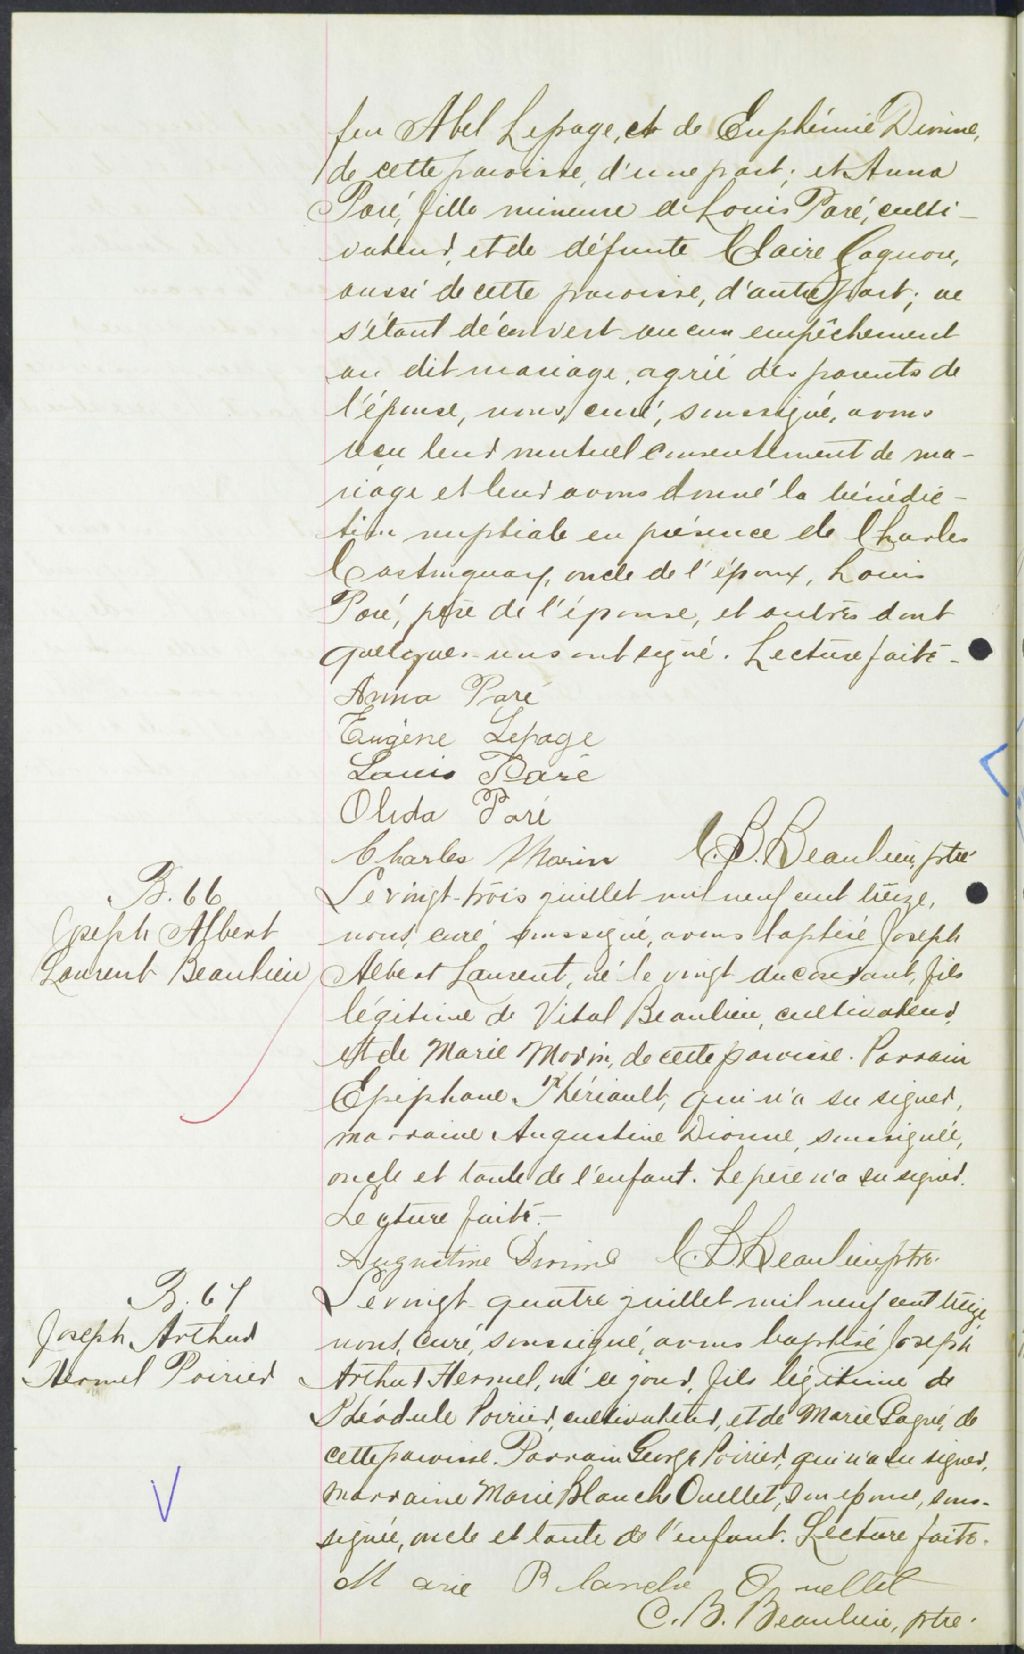 feu Abel Lepage, et de Euphémie Dionne,
de cette paroisse, d'une part; et Anna
Paré, fille mineure de Louis Paré, culti-
vateur, et de défunte Claire Gagnon,
aussi de cette paroisse, d'autre part; ne
s'étant découvert aucun empêchement
au dit mariage, agréé des parents de
l'épouse, nous, curé, soussigné, avons
reçu leur mutuel consentement de ma-
riage et leur avons donné la bénédic-
tion nuptiale en présence de Charles
Castonguay, oncle de l'époux, Louis
Paré, père de l'épouse, et autres dont
quelques-uns ont signé. Lecture faite.
Anna Paré
Eugène Lepage
Louis Paré
Olida Paré
Charles Morin C. B. Beaulieu, ptre
B. 66
Joseph Albert
Laurent Beaulieu
Le vingt-trois juillet mil neuf cent treize,
nous, curé soussigné, avons baptisé Joseph
Albert Laurent, né le vingt du courant, fils
légitime de Vital Beaulieu, cultivateur,
et de Marie Morin, de cette paroisse. Parrain
Epiphane Thériault, qui n'a su signer,
marraine Augustine Dionne, soussignée,
oncle et tante de l'enfant. Le père n'a su signer.
Lecture faite.—
Augustine Dionne C. B. Beaulieu ptre.
B. 67
Joseph Arthur
Hermel Poirier
Le vingt-quatre juillet mil neuf cent treize,
nous, curé, soussigné, avons baptisé Joseph
Arthur Hermel, né ce jour, fils légitime de
Théodule Poirier, cultivateur, et de Marie Gagné, de
cette paroisse. Parrain George Poirier, qui n'a su signer,
marraine Marie Blanche Ouellet, son épouse, sous-
signée, oncle et tante de l'enfant. Lecture faite.
Marie Blanche Ouellet
C. B. Beaulieu, ptre.